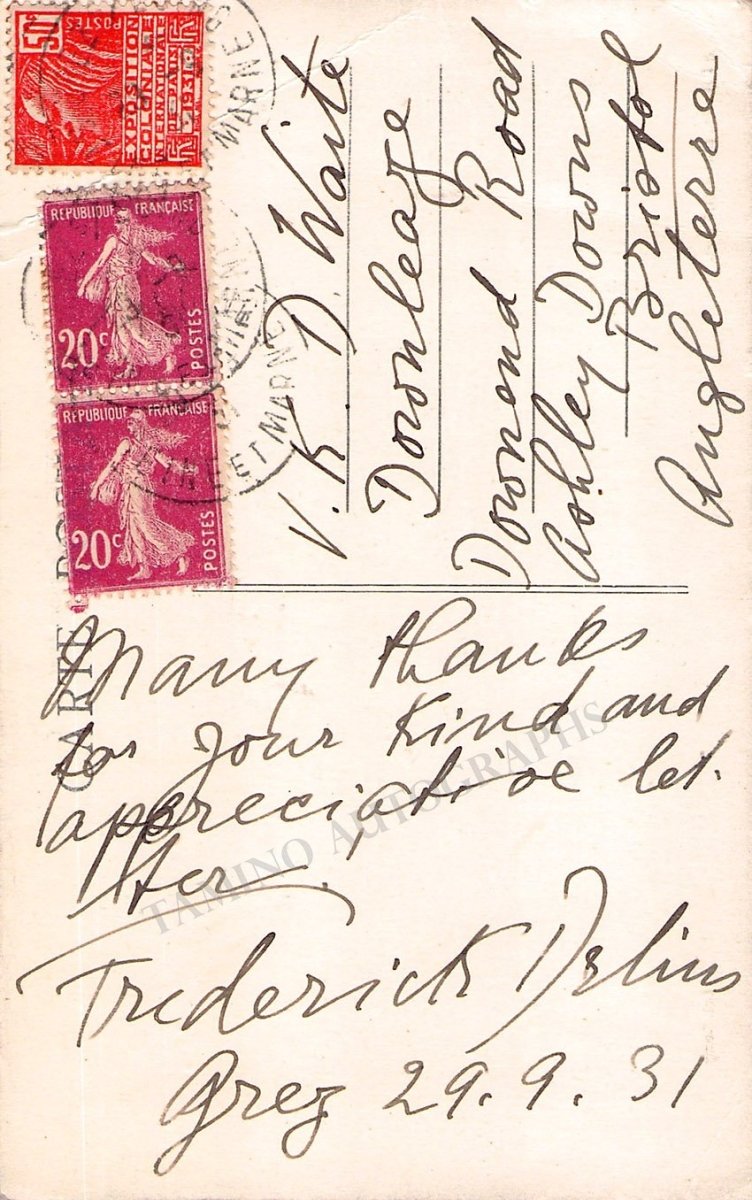 50
POSTES
EXPOSITION
COLONIALE
INTERNATIONALE
DE PARIS
1931
MARNE
REPUBLIQUE FRANÇAISE
20c
POSTES
REPUBLIQUE FRANÇAISE
20c
POSTES
SEINE ET MARNE
CARTE
V. K. D. Waite
Downleaze
Downend Road
Ashley Downs
Bristol
Angleterre
Many thanks
for your kind and
appreciative let-
ter.
Frederick Delius
Grez 29.9.31
TAMINO AUTOGRAPHS